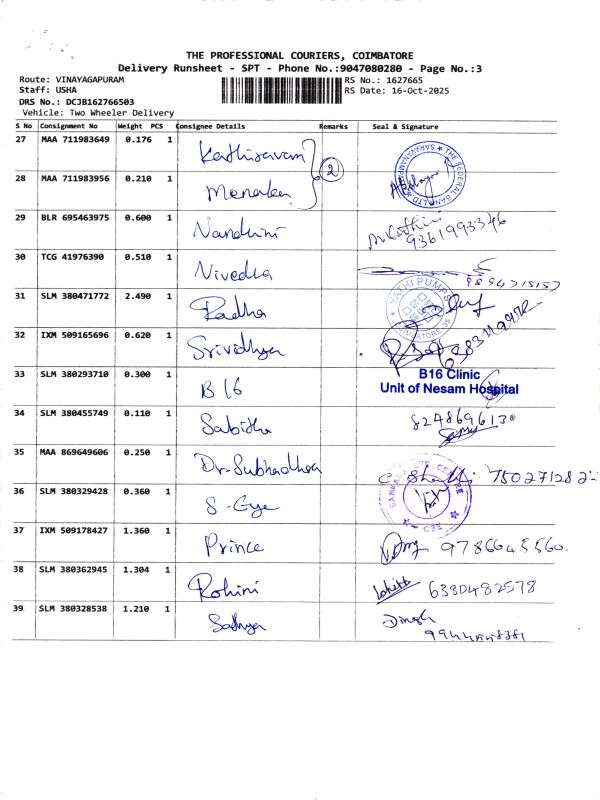 THE PROFESSIONAL COURIERS, COIMBATORE
Delivery Runsheet - SPT - Phone No.:9047080280 - Page No.:3
Route: VINAYAGAPURAM RS No.: 1627665
Staff: USHA RS Date: 16-Oct-2025
DRS No.: DCJB162766503
Vehicle: Two Wheeler Delivery
S No Consignment No Weight PCS Consignee Details Remarks Seal & Signature
27 MAA 711983649 0.176 1 Kathiravan
THE FEDERAL BANK LTD
28 MAA 711983956 0.210 1 Menaka 2
29 BLR 695463975 0.600 1 Nandhini 9361993346
30 TCG 41976390 0.510 1 Nivedha
31 SLM 380471772 2.490 1 Radha
PUMPS
32 IXM 509165696 0.620 1 Srividhya
33 SLM 380293710 0.300 1 B16 B16 Clinic
Unit of Nesam Hospital
34 SLM 380455749 0.110 1 Sabitha
35 MAA 869649606 0.250 1 Dr. Subhadhra
SANKARA EYE CENTRE CBE
36 SLM 380329428 0.360 1
37 IXM 509178427 1.360 1 Prince 9786645560.
38 SLM 380362945 1.304 1 Rohini 6380482578
39 SLM 380328538 1.210 1 Sathya